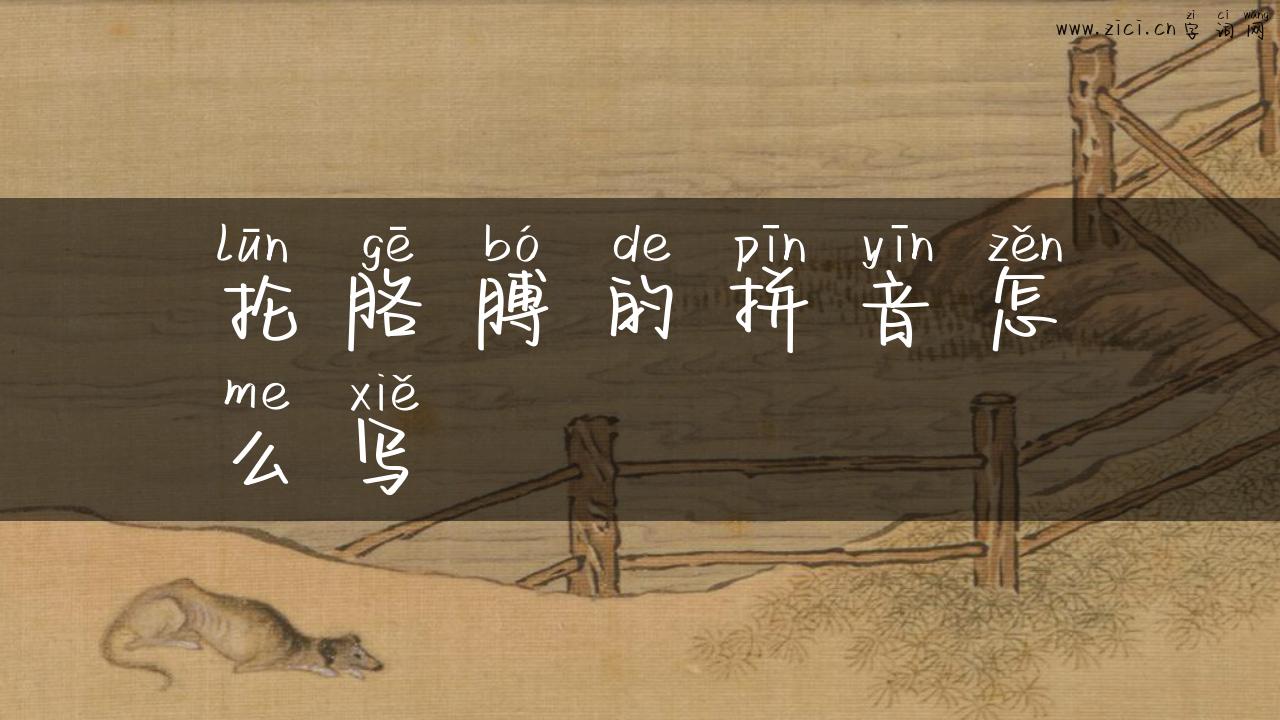 zì cí wǎng
www.zici.cn 字词网
lūn gē bó de pīn yīn zěn
抡胳膊的拼音怎
me xiě
么写